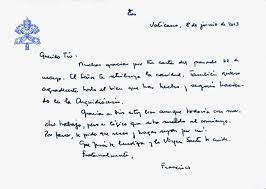 Vaticano, 8 de junio de 2013
Querido Tis:
Muchas gracias por tu carta del pasado 22 de
mayo. El Señor te retribuya la caridad. También quiero
agradecerte todo el bien que has hecho y seguís hacien-
do en la Arquidiócesis.
Gracias a Dios estoy bien aunque todavía con mu-
cho trabajo, pero es lógico que esto suceda al comienzo.
Por favor, te pido que reces y hagas rezar por mí.
Que Jesús te bendiga y la Virgen Santa te cuide.
Fraternalmente,
Francisco